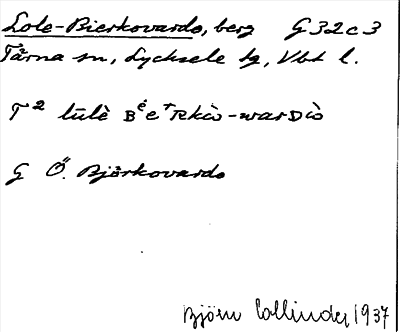 Lole-Bierkovardo, berg G 32 c 3
Tärna sn, Lycksele lg, Vbt l.
T² lūlè
G Ö. Björkovardo
Björn Collinder 1937